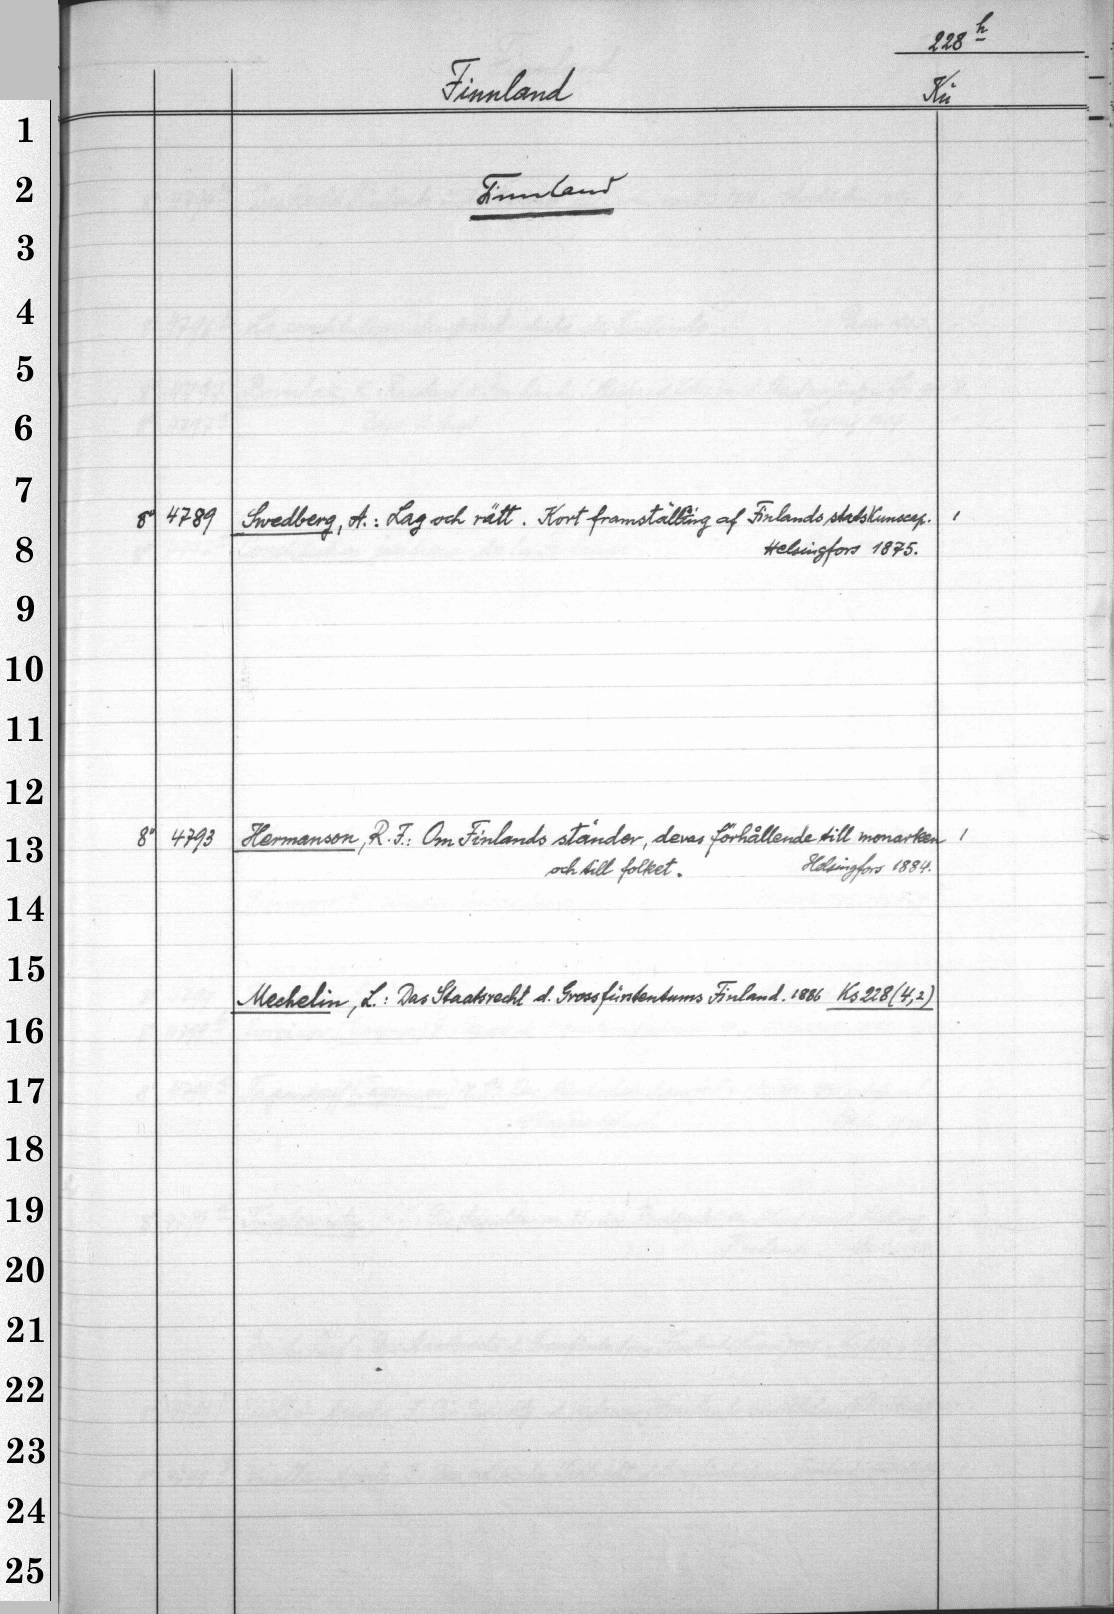 228 h
Finnland Kü
1
Finnland
2
3
4
5
6
7
8° 4789 Swedberg, A.: Lag och rätt. Kort framställing af Finlands statskunscap. 1
8
Helsingfors 1875.
9
10
11
12
8° 4793 Hermanson, R. F.: Om Finlands ständer, deras förhållende till monarken 1
13
och till folket. Helsingfors 1884.
14
15
Mechelin, L.: Das Staatsrecht d. Grossfürstentums Finland. 1886 Ks 228 (4,2)
16
17
18
19
20
21
22
23
24
25